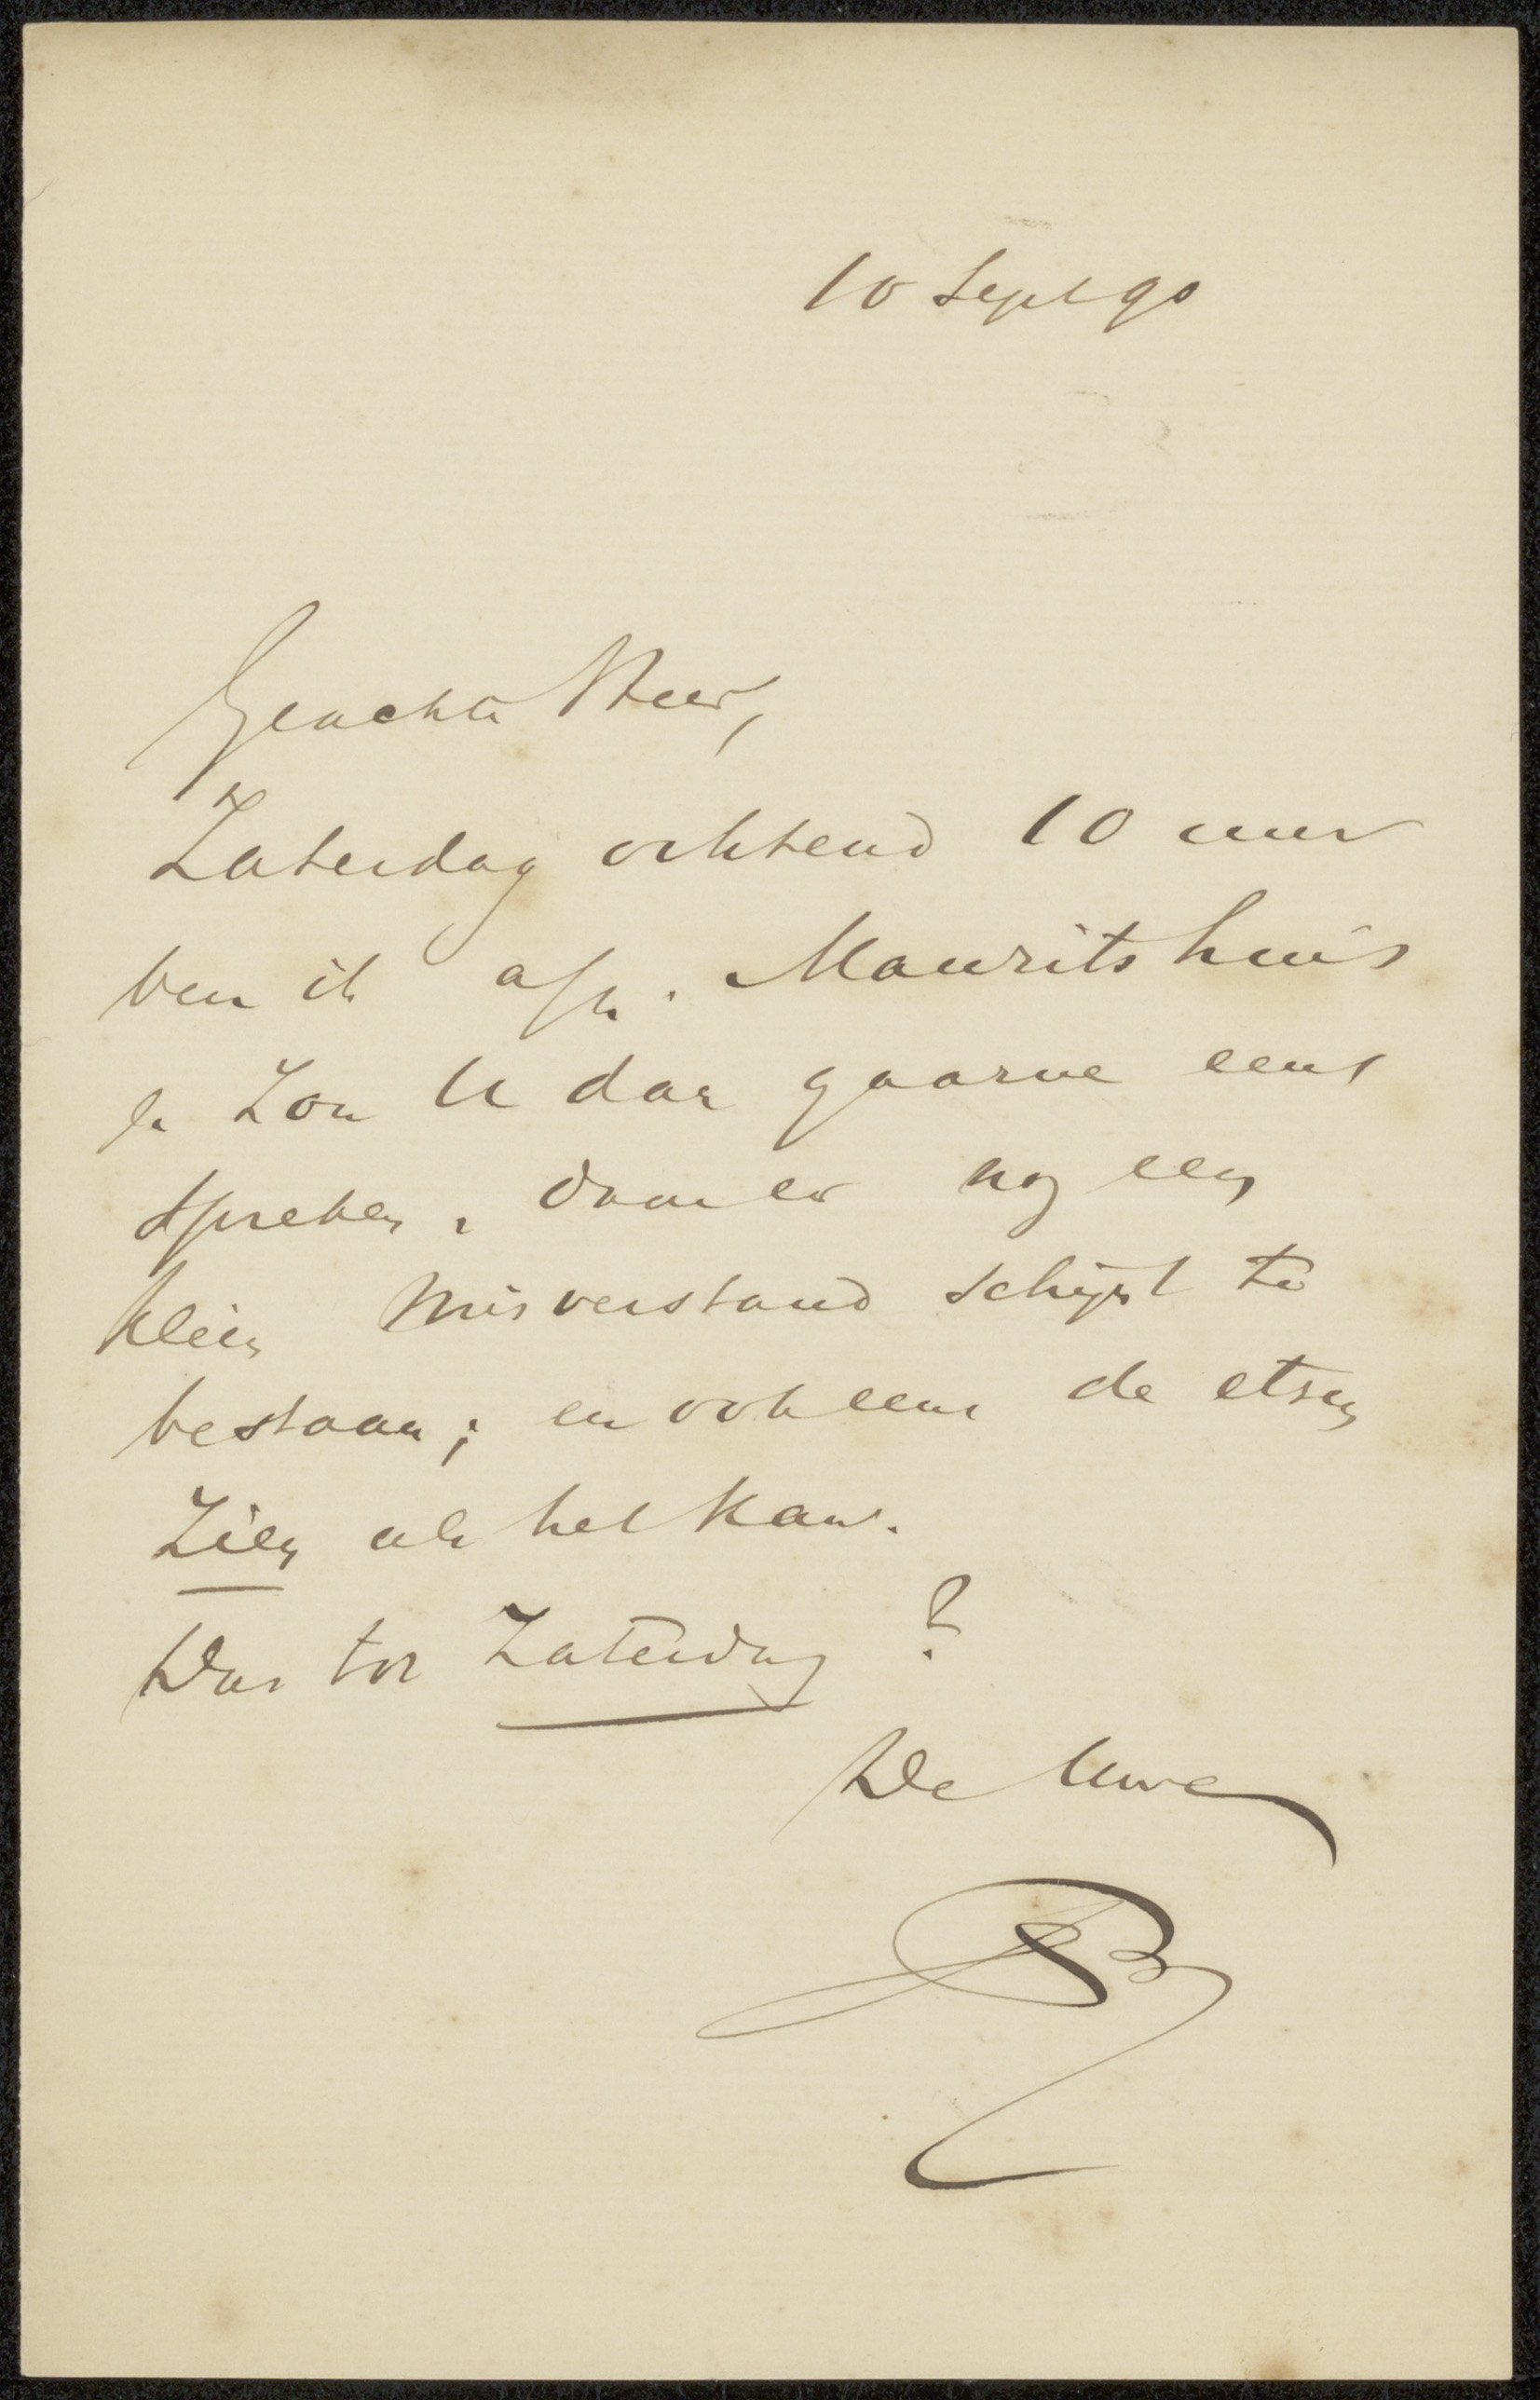 10 Sept 90
Geachte Heer,
Zaterdag ochtend 10 uur
ben ik op h. Mauritshuis
& zou U dan gaarne eens
spreken, daar er nog een
klein misverstand schijnt te
bestaan; en ook eens de etsen
zien als het kan.
Dus tot Zaterdag?
De Uwe